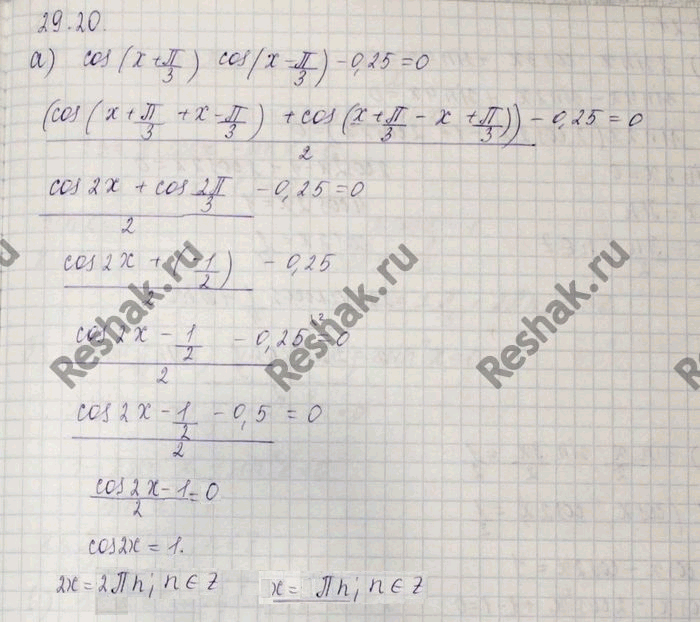 29.20.
а) cos(x+π/3) cos(x-π/3) -0,25=0
(cos(x+π/3 +x-π/3) +cos(x+π/3 -x +π/3))/2 -0,25=0
(cos2x + cos 2π/3)/2 -0,25=0
(cos2x + (-1/2))/2 -0,25
(cos2x - 1/2)/2 -0,25\2 =0
(cos2x - 1/2 -0,5)/2 = 0
(cos2x-1)/2 =0
cos2x = 1.
2x=2πn; n∈Z x= πn; n∈Z
Reshak.ru
Reshak.ru
Reshak.ru